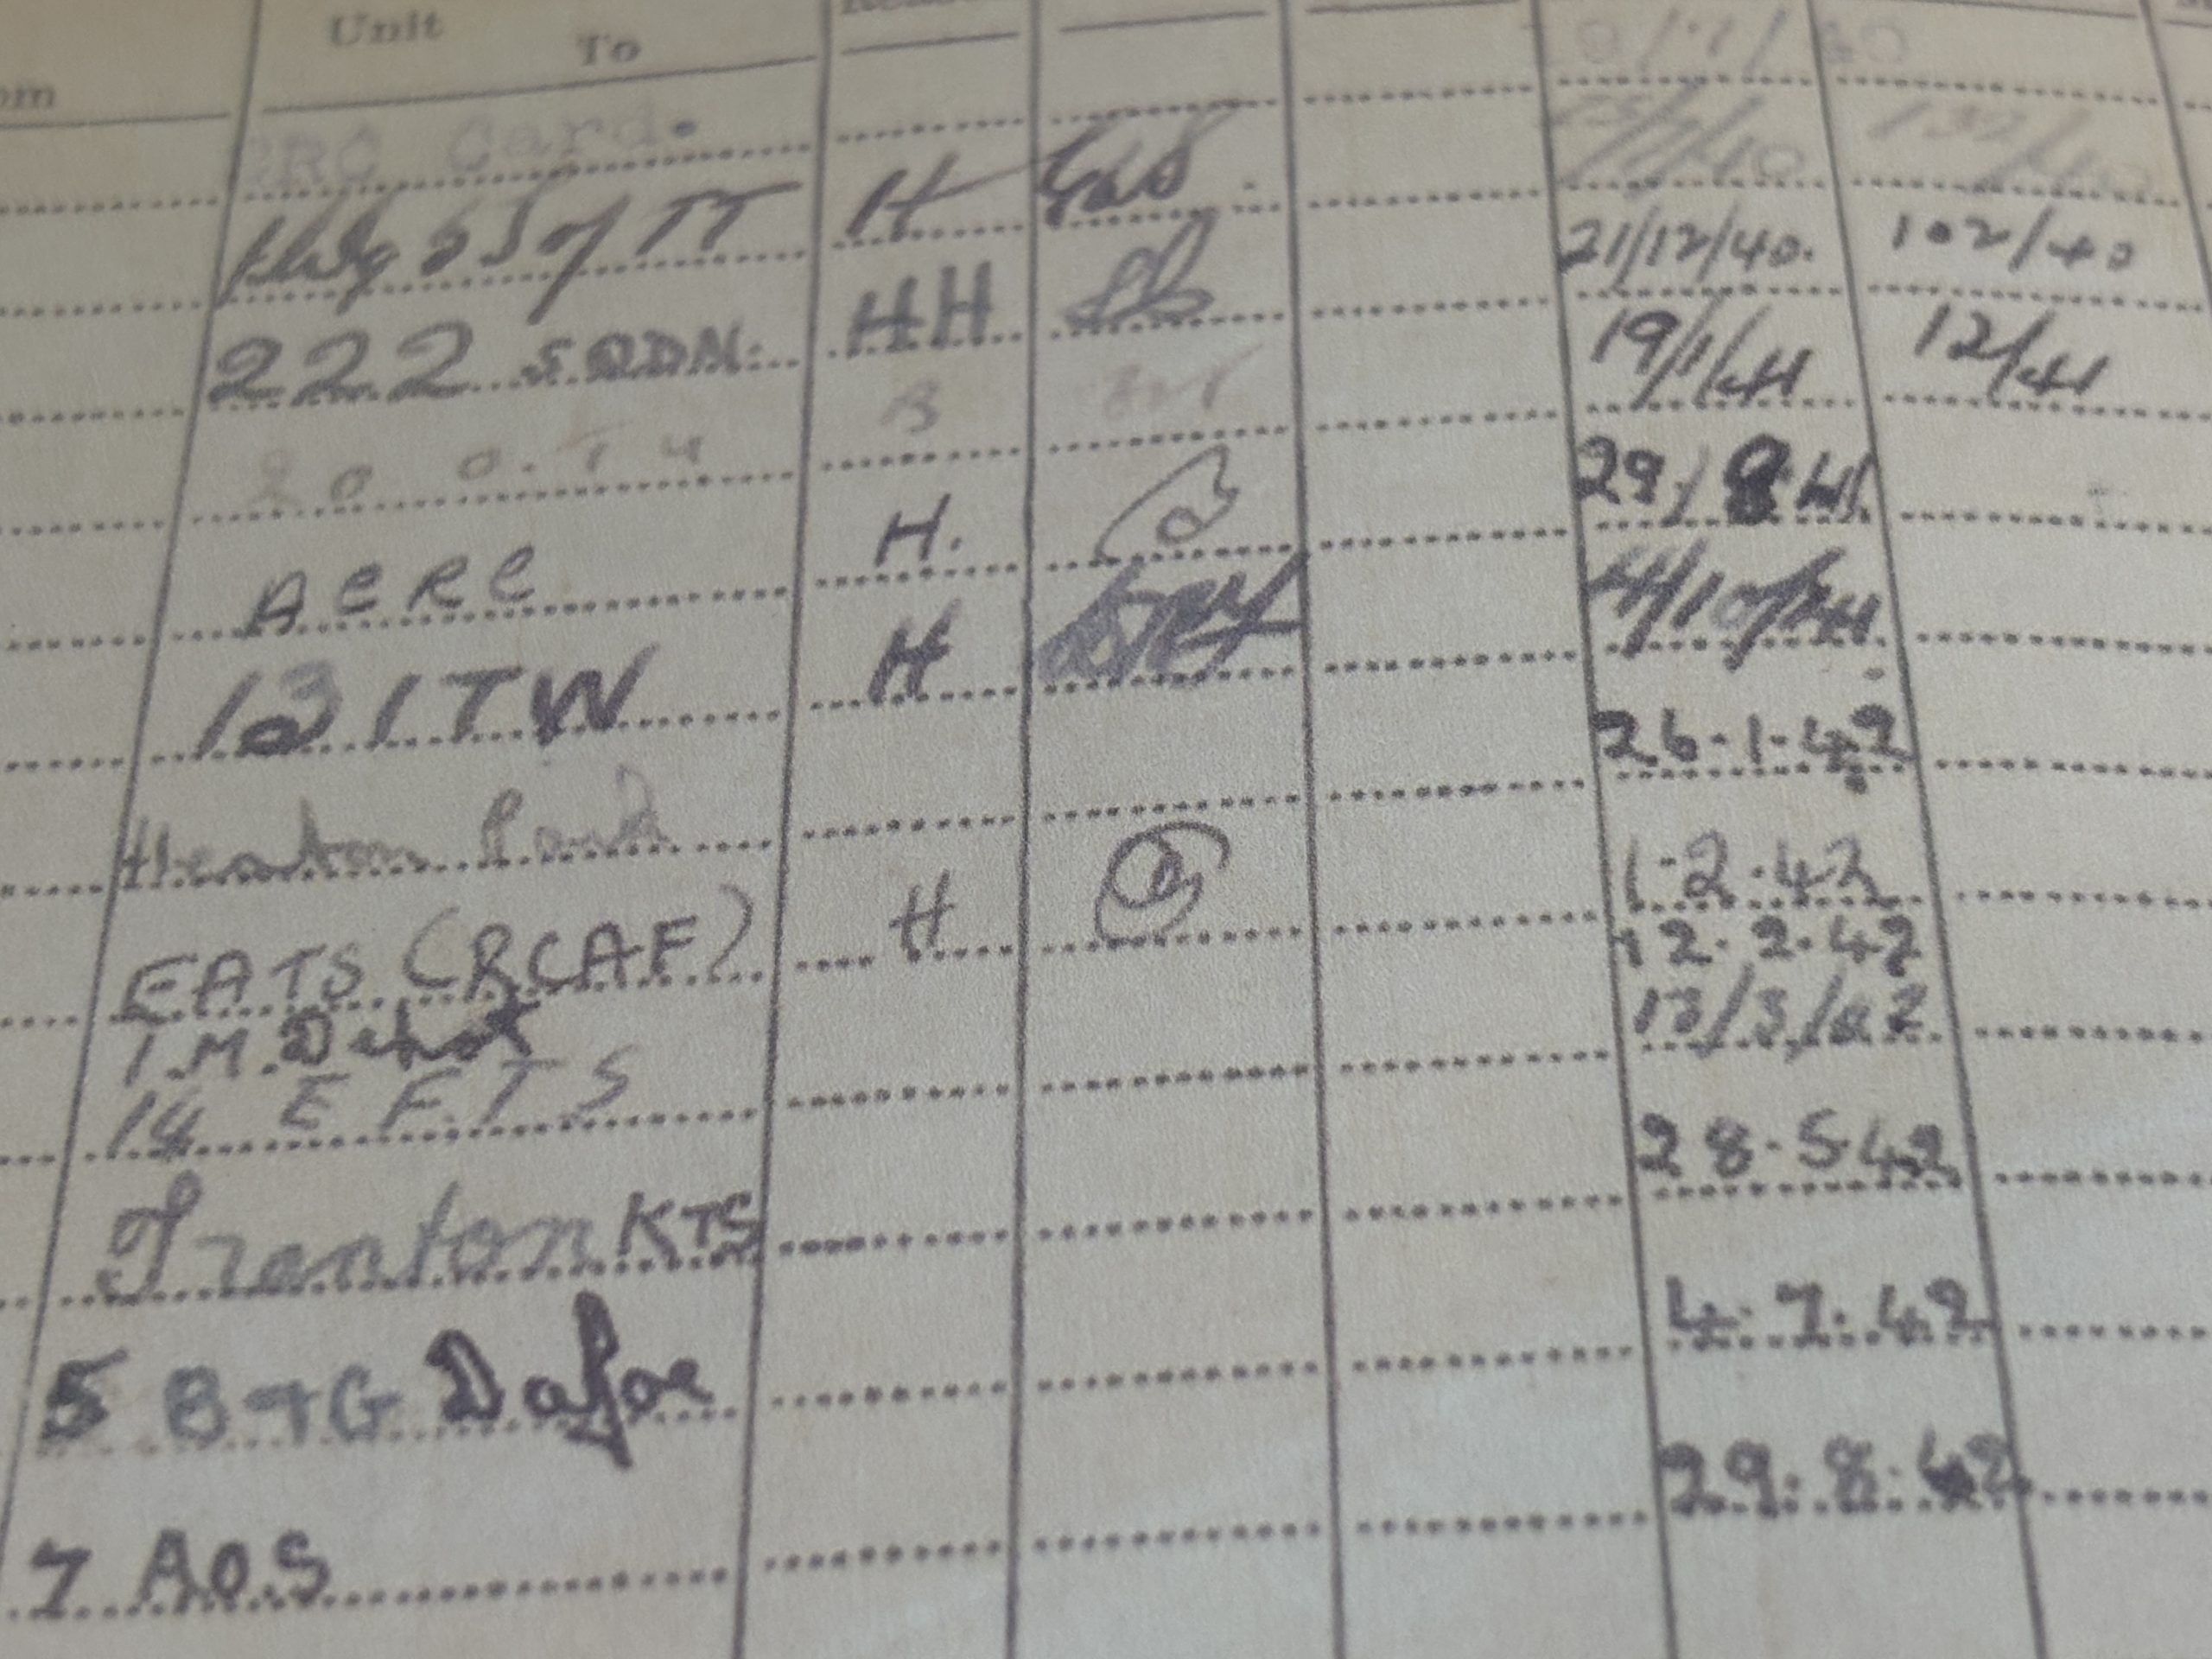 Unit
To
RC Card.
of TT H 21/12/40. 102/40
222 SQDN. HH 19/1/41 12/41
20 O.T.U B 29/8/41
ACRC H. 4/10/41
13 ITW H 26.1.42
Heaton Park 1.2.42
EATS (RCAF) H 12.2.42
1.M.Depot 13/3/42
14 E.F.T.S 28.5.42
Trenton KTS 4.7.42
5 B+G Dafoe 29.8.42
7 A.O.S